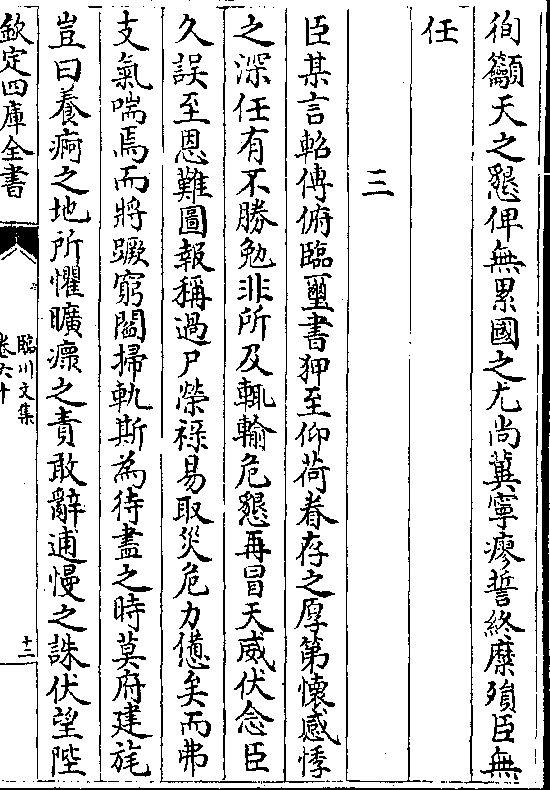 徇籲天之懇俾無累國之尤尚冀寧瘳誓終糜殞臣無
任
三
臣某言軺傳俯臨璽書狎至仰荷眷存之厚第懷感悸
之深任有不勝勉非所及輒輸危懇再冒天威伏念臣
久誤至恩難圖報稱過尸榮祿易取災危力憊矣而弗
支氣喘焉而將蹶窮閻掃軌斯為待盡之時莫府建旄
豈曰養痾之地所懼曠瘝之責敢辭逋慢之誅伏望陛
欽定四庫全書
臨川文集
卷六十
十二